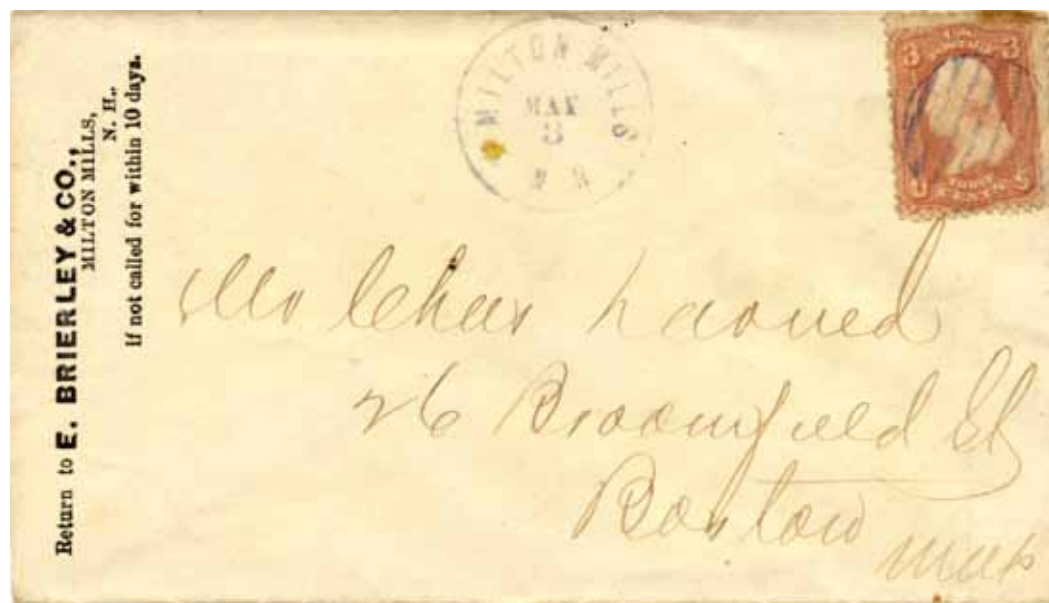 Return to E. BRIERLEY & CO.,
MILTON MILLS,
N. H.,
If not called for within 10 days.
MILTON MILLS
MAY
3
N H
3 3
Mr Chas Larned
26 Broomfield St
Boston
Mass